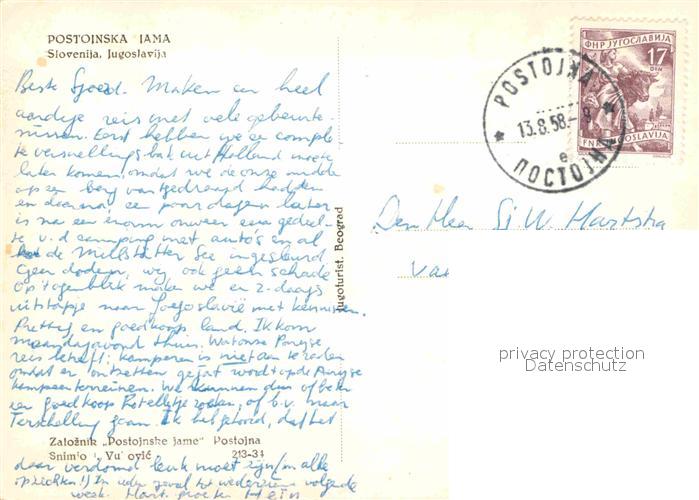 POSTOJNSKA JAMA
Slovenija, Jugoslavija
Beste Sjoerd. Maken een heel
aardige reis met vele gebeurte-
nissen. Eerst hebben we een comple-
te versnellingsbak uit Holland moeten
laten komen, omdat we de onze midden
op een berg van gedraaid hadden
en daarna, een paar dagen later
is na een enorm onweer een gedeel-
te v.d camping met auto's en al
de Millstätter See ingesleurd
Geen doden, wij ook geen schade
Op 't ogenblik maken we een 2-daags
uitstapje naar Joegoslavië met kennissen.
Prettig en goedkoop land. Ik kom
maandagavond thuis. Wat onze Parijse
reis betreft: kamperen is niet aan te raden
omdat er ontzettend gejat wordt op de Parijse
kampeerterreinen. We kunnen dus of een
goedkoop hotelletje zoeken, of b.v. naar
Terschelling gaan. Ik heb gehoord, dat het
Založnik „Postojnske jame" Postojna
Snimio Vu ović 213-34
daar verdomd leuk moet zijn (en alle
oprechten!) In ieder geval tot wederzien volgende
week. Hart. groeten Hein
Jugoturist, Beograd
POSTOJNA
13.8.58.-8
e
ПОСТОЈНА
ФНР ЈУГОСЛАВИЈА
17
DIN
FNR JUGOSLAVIJA
Den Heer Sj. W. Hartstra
Va
privacy protection
Datenschutz